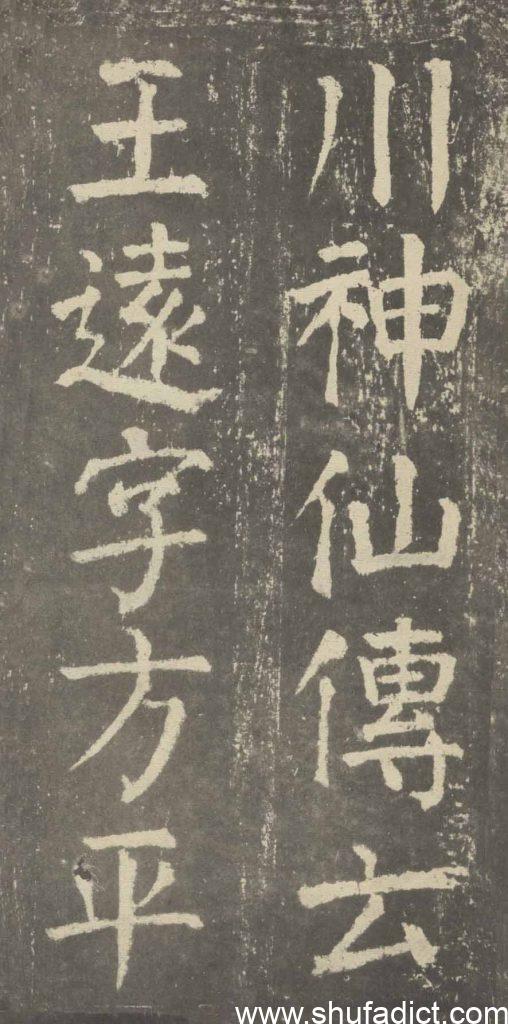 川神仙傳云
王遠字方平
www.shufadict.com